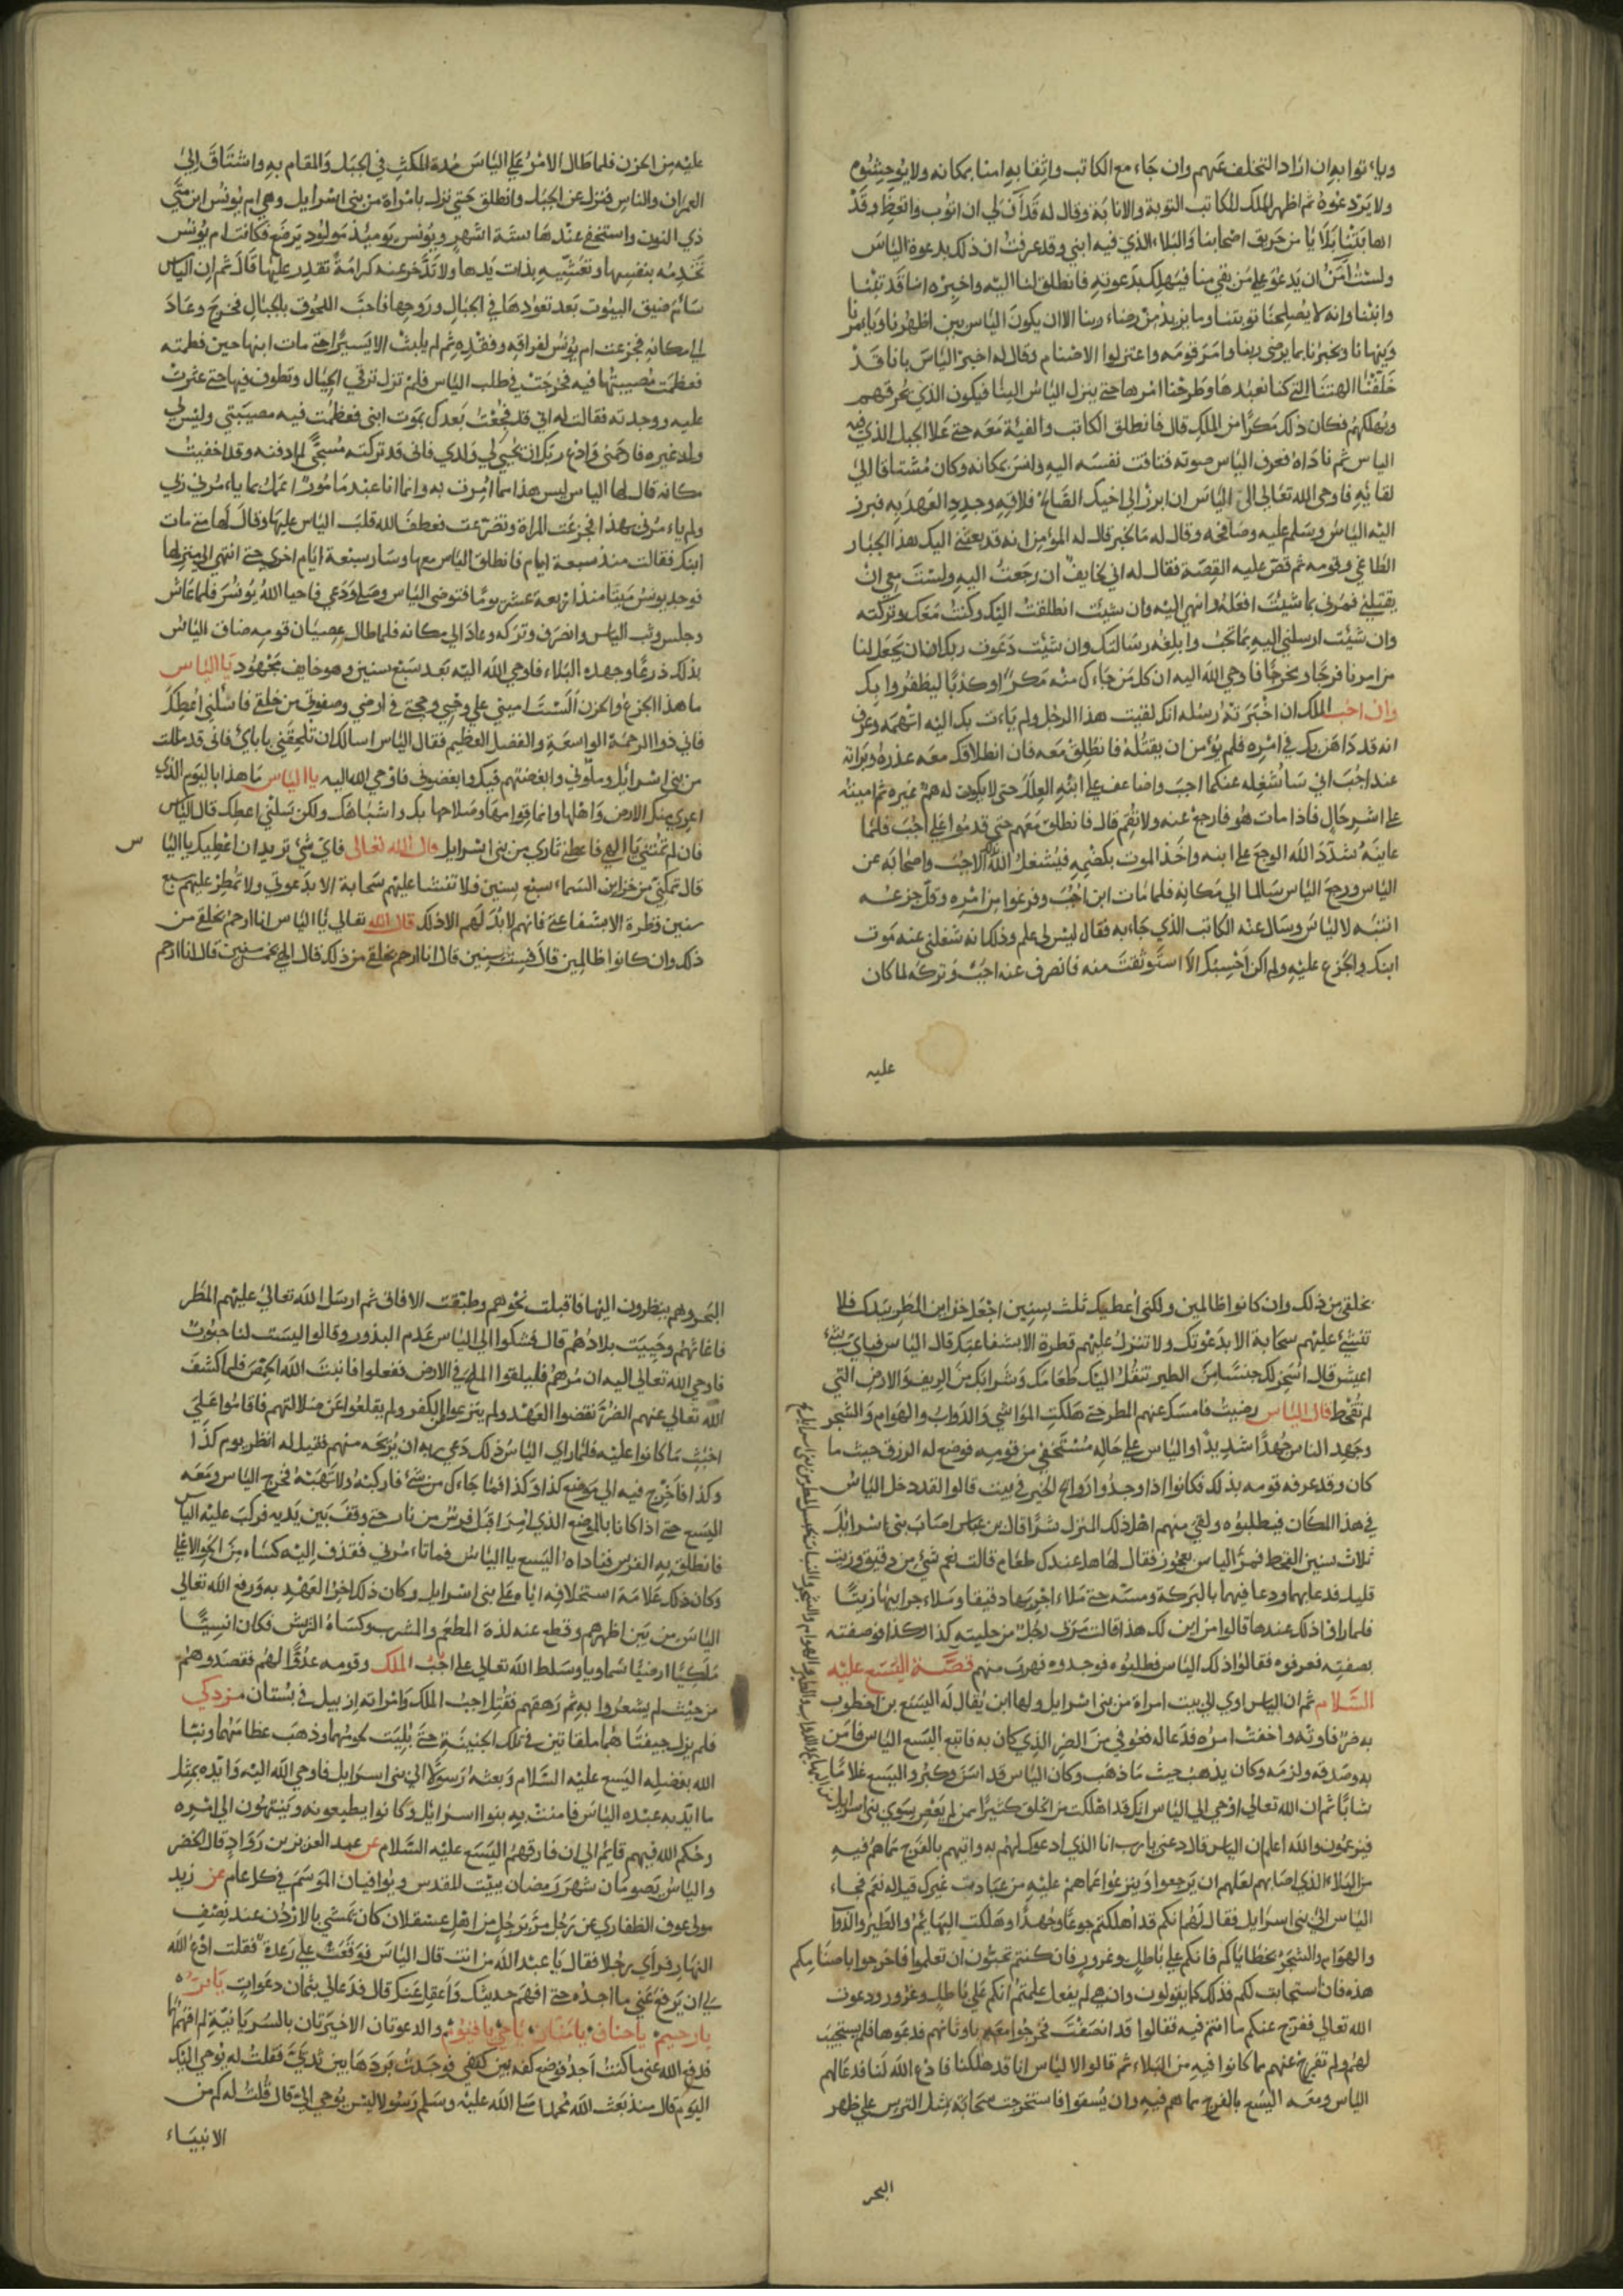 وياء توا به ان اراد التخلف عنهم وان جاء مع الكاتب واثقا به امنا بمكانه ولا يوحشوه
ولا يردعوه ثم اظهر الملك للكاتب التوبة والانابة وقال له قد آن لي ان اتوب واتعظ وقد
اصابتنا بلايا من حريق اصحابنا والبلاء الذي فيه ابني وقد عرفت ان ذلك بدعوة الياس
ولست آمن ان يدعو على من بقي منا فيهلك بدعوته فانطلق لنا اليه واخبره انا قد تبنا
وانبنا وانه لا يصلحنا توبتنا وما نريد من رضاء ربنا الا ان يكون الياس بين اظهرنا ويامرنا
وينهانا ويخبرنا بما يرضى ربنا وامر قومه واعتزلوا الاصنام وقال له اخبر الياس بانا قد
خلفنا الهتنا التي كنا نعبدها وطرحنا امرها حتى ينزل الياس الينا فيكون الذي يحرقهم
ويهلكهم فكان ذلك مكرا من الملك قال فانطلق الكاتب والفئة معه حتى علا الجبل الذي فيه
الياس ثم ناداه فعرف الياس صوته فتاقت نفسه اليه وامن بمكانه وكان مشتاقا الى
لقايه فاوحى الله تعالى الى الياس ان ابرز الى اخيك الصالح فلاقيه وجدد العهد به فبرز
اليه الياس وسلم عليه وصافحه وقال له ما الخبر قال له المؤمن انه قد بعثني اليك هذا الجبار
الطاغي وقومه ثم قص عليه القصة فقال له اني خايف ان رجعت اليه ولست معي ان
يقتلني فمرني بما شيئت افعله وانهي اليه وان شيئت انطلقت اليك وكنت معك وتركته
وان شئت ارسلني اليه بما تحب وابلغه رسالتك وان شئت دعوت ربك ان يجعل لنا
من امرنا فرجا ومخرجا فاوحى الله اليه ان كل من جاءك منه مكرا وكذبا ليظفروا بك
وان احب الملك ان اخبرته رسله انك لقيت هذا الرجل ولم ياءت بك اليه اتهمه وعرف
انه قد داهن بك في امره فلم يؤمن ان يقتله فانطلق معه فان انطلاقك معه عذره وبراته
عند احب اني ساشغله عنكما احب واضاعف على ابنه العلل حتى لا يكون له هم غيره ثم اميته
على اشر حال فاذا مات هو فارجع عنه ولا تقم قال فانطلق معهم حتى قدموا على احب فلما
عاينه شدد الله الوجع على ابنه واخذ الموت بكضمه فيشغل الله الاحب واصحابه عن
الياس ورجع الياس سالما الى مكانه فلما مات ابن احب وفرغوا من امره وقل جزعه
انتبه لالياس وسال عنه الكاتب الذي جاء به فقال ليس لي علم وذلك انه شغلني عنه موت
ابنك والجزع عليه ولم اكن احسبك الا استوثقت منه فانصرف عنه احب وتركه لما كان
عليه
عليه من الحزن فلما طال الامر على الياس مدة المكث في الجبل والمقام به واشتاق الى
العمران والناس فنزل عن الجبل وانطلق حتى نزل بامراة من بنى اسرايل وهي ام يونس ابن متى
ذي النون واستخفى عندها ستة اشهر ويونس يوميذ مولود يرضع فكانت ام يونس
تخدمه بنفسها وتعشيه بذات يدها ولا تدخر عنه كرامة تقدر عليها قال ثم ان الياس
سائم ضيق البيوت بعد تعوده في الجبال وروحها فاحب اللحوق بالجبال فخرج وعاد
الى مكانه فجزعت ام يونس لفراقه وفقده ثم لم يلبث الا يسيرا حتى مات ابنها حين فطمته
فعظمت مصيبتها فيه فخرجت في طلب الياس فلم تزل ترقى الجبال وتطوف فيها حتى عثرت
عليه ووجدته فقالت له اني قد فجعت بعدك بموت ابنى فعظمت فيه مصيبتي وليس لي
ولد غيره فارحمني وادع ربك ان يحيي لي ولدي فاني قد تركته مسجى لم ادفنه وقد اخفيت
مكانه قال لها الياس ليس هذا مما امرت به وانما انا عبد مامور اعمل بما ياءمرني ربي
ولم ياءمرني بهذا فجزعت المراة وتضرعت فعطف الله قلب الياس عليها وقال لها متى مات
ابنك فقالت منذ سبعة ايام فانطلق الياس معها وسار سبعة ايام اخرى حتى انتهى الى منزلها
فوجد يونس ميتا منذ اربعة عشر يوما فتوضى الياس وصلى ودعى فاحيا الله يونس فلما عاش
وجلس وثب الياس وانصرف وتركه وعاد الى مكانه فلما طال عصيان قومه ضاق الياس
بذلك ذرعا وجهده البلاء فاوحى الله اليه بعد سبع سنين وهو خايف مجهود يا الياس
ما هذا الجزع والحزن الست اميني على وحيي وحجتي في ارضي وصفوتي من خلقي فاسئلني اعطك
فاني ذو الرحمة الواسعة والفضل العظيم فقال الياس اسالك ان تلحقني باباءى فاني قد مللت
من بنى اسرايل وملوني وابغضتهم فيك وابغضوني فاوحى الله اليه يا الياس ما هذا باليوم الذي
اعري منك الارض واهلها وانما قوامها وصلاحها بك وباشباهك ولكن تسلني اعطك قال الياس
فان لم تمتني يا الهي فاعطني ثاري من بنى اسرايل قال الله تعالى فاي شئ تريد ان اعطيك يا اليا
س
قال تمكني من خزاين السماء سبع سنين فلا تنشا عليهم سحابة الا بدعوتي ولا تمطر عليهم سبع
سنين قطرة الا بشفاعتي فانهم لا بد لهم الا ذلك قال الله تعالى يا الياس انا ارحم بخلقى من
ذلك وان كانوا ظالمين قال فست سنين قال انا ارحم بخلقى من ذلك قال الهي فخمس سنين قال انا ارحم
بخلقى من ذلك وان كانوا ظالمين ولكني أعطيك ثلث سنين اجعل خزاين المطر بيدك فلا
تنشئ عليهم سحابة الا بدعوتك ولا تنزل عليهم قطرة الا بشفاعتك قال الياس فباى شئ
اعيش قال اسخر لك جنسا من الطير تنقل اليك طعامك وشرابك من الريف والارض التي
لم تقحط قال الياس رضيت فامسك عنهم المطر حتى هلكت المواشي والدواب والهوام والشجر
وجهد الناس جهدا شديدا والياس على حاله مستخفى من قومه فوضع له الرزق حيث ما
كان وقد عرفه قومه بذلك فكانوا اذا وجدوا ارواح الخبز في بيت قالوا لقد دخل الياس
في هذا المكان فيطلبوه ولقي منهم اهل ذلك المنزل شرا قال بن عباس اصاب بنى اسرائل
ثلاث سنين القحط فمر الياس بعجوز فقال لها هل عندك طعام قالت نعم شئ من دقيق وزيت
قليل فدعا بهما ودعا فيهما بالبركة ومسه حتى ملاء اجربها دقيقا وملاء جرابها زيتا
فلما راوا ذلك عندها قالوا من اين لك هذا قالت مر بي رجل من حليته كذا وكذا فوصفته
بصفته فعرفوه فقالوا ذلك الياس فطلبوه فوجدوه فهرب منهم قصة اليسع عليه
السلام ثم ان الياس اوى الى بيت امراة من بنى اسرايل ولها ابن يقال له اليسع بن اخطوب
به ضر فاوته واخفت امره فدعا له فعوفي من الضر الذي كان به فاتبع اليسع الياس فامن
به وصدقه ولزمه وكان يذهب حيث ما ذهب وكان الياس قد اسن وكبر واليسع غلاما
شابا ثم ان الله تعالى اوحى الى الياس انك قد اهلكت من الخلق كثيرا ممن لم يعص سوى بنى اسرايل
فيزعمون والله اعلم ان الياس قال دعنى يا رب انا الذي ادعوك لهم به واتيهم بالفرج مما هم فيه
من البلاء الذي اصابهم لعلهم ان يرجعوا وينزعوا عما هم عليه من عبادت غيرك قيل له نعم فجاء
الياس الى بنى اسرايل فقال لهم انكم قد اهلكتم جوعا وجهدا وهلكت البهائم والطير والدوا
والهوام والشجر بخطاياكم فانكم على باطل وغرور فان كنتم تحبون ان تعلموا فاخرجوا باصنامكم
هذه فان استجابت لكم فذلك كما يقولون وان هي لم يفعل علمتم انكم على باطل وغرور ودعوت
الله تعالى ففرج عنكم ما انتم فيه فقالوا قد انصفت فخرجوا معه باوثانهم فدعوها فلم يستجيب
لهم ولم تفرج عنهم مما كانوا فيه من البلاء ثم قالوا لالياس انا قد هلكنا فادع الله لنا فدعا لهم
الياس ومعه اليسع بالفرج مما هم فيه وان يسقوا فاستخرجت سحابة مثل الترس على ظهر
البحر
البحر وهم ينظرون اليها فاقبلت نحوهم وطبقت الافاق ثم ارسل الله تعالى عليهم المطر
فاغاثهم وحييت بلادهم قال فشكوا الى الياس عدم البذور وقالوا ليست لنا حبوت
فاوحى الله تعالى اليه ان مرهم فليلقوا الملح في الارض ففعلوا فانبت الله الحمص فلما كشف
الله تعالى عنهم الضر نقضوا العهد ولم ينزعوا الكفر ولم يقلعوا عن ضلالتهم فاقاموا على
اخبث ما كانوا عليه فلما راى الياس ذلك دعى ربه ان يريحه منهم فقيل له انظر يوم كذا
وكذا فاخرج فيه الى موضع كذا وكذا فما جاءك من شئ فاركبه ولا تهبه فخرج الياس ومعه
اليسع حتى اذا كانا بالموضع الذي امر اقبل فرس من نار حتى وقف بين يديه فركب عليه الياس
فانطلق به الفرس فناداه اليسع يا الياس فما تاءمرني فقذف اليه كساءه من الجو الاعلى
وكان ذلك علامة استخلافه اياه على بنى اسرايل وكان ذلك اخر العهد به ورفع الله تعالى
الياس من بين اظهرهم وقطع عنه لذة المطعم والمشرب وكساه الريش فكان انسيا
ملكيا ارضيا سماويا وسلط الله تعالى على احب الملك وقومه عدوا لهم فقصدوهم
من حيث لم يشعروا به ثم رهقهم فقتل احب الملك وامراته ازبيل في بستان مزدكى
فلم يزل جيفتاهما ملقاتين في تلك الجنينة حتى بليت لحومهما وذهب عظامهما ونبا
الله بفضله اليسع عليه السلام وبعثه رسولا الى بنى اسرايل فاوحى الله اليه وايده بمثل
ما ايد به عبده الياس فامنت به بنوا اسرائل وكانوا يطيعونه وينتهون الى امره
وحكم الله فيهم قايم الى ان فارقهم اليسع عليه السلام عن عبد العزيز بن رواد قال الخضر
والياس يصومان شهر رمضان ببيت المقدس ويوافيان الموسم في كل عام عن زيد
مولى عوف الطفاري عن رجل من اهل عسقلان كان يمشي بالاردن عند نصف
النهار فراى رجلا فقال يا عبد الله من انت قال الياس فوقعت على رعدة فقلت ادع الله
لي ان يرفع عني ما اجده حتى افهم حديثك واعقل عنك قال فدعا لي بثمان دعوات يا بر
يا رحيم يا حنان يا منان يا حي يا قيوم والدعوتان الاخيرتان بالسريانية لم افهمهما
فرفع الله عني ما كنت اجد فوضع كفه بين كتفي فوجدت بردها بين ثديي فقلت له يوحى اليك
اليوم قال منذ بعث الله محمدا صلى الله عليه وسلم رسولا ليس يوحى الي قال قلت له كم من
الانبياء